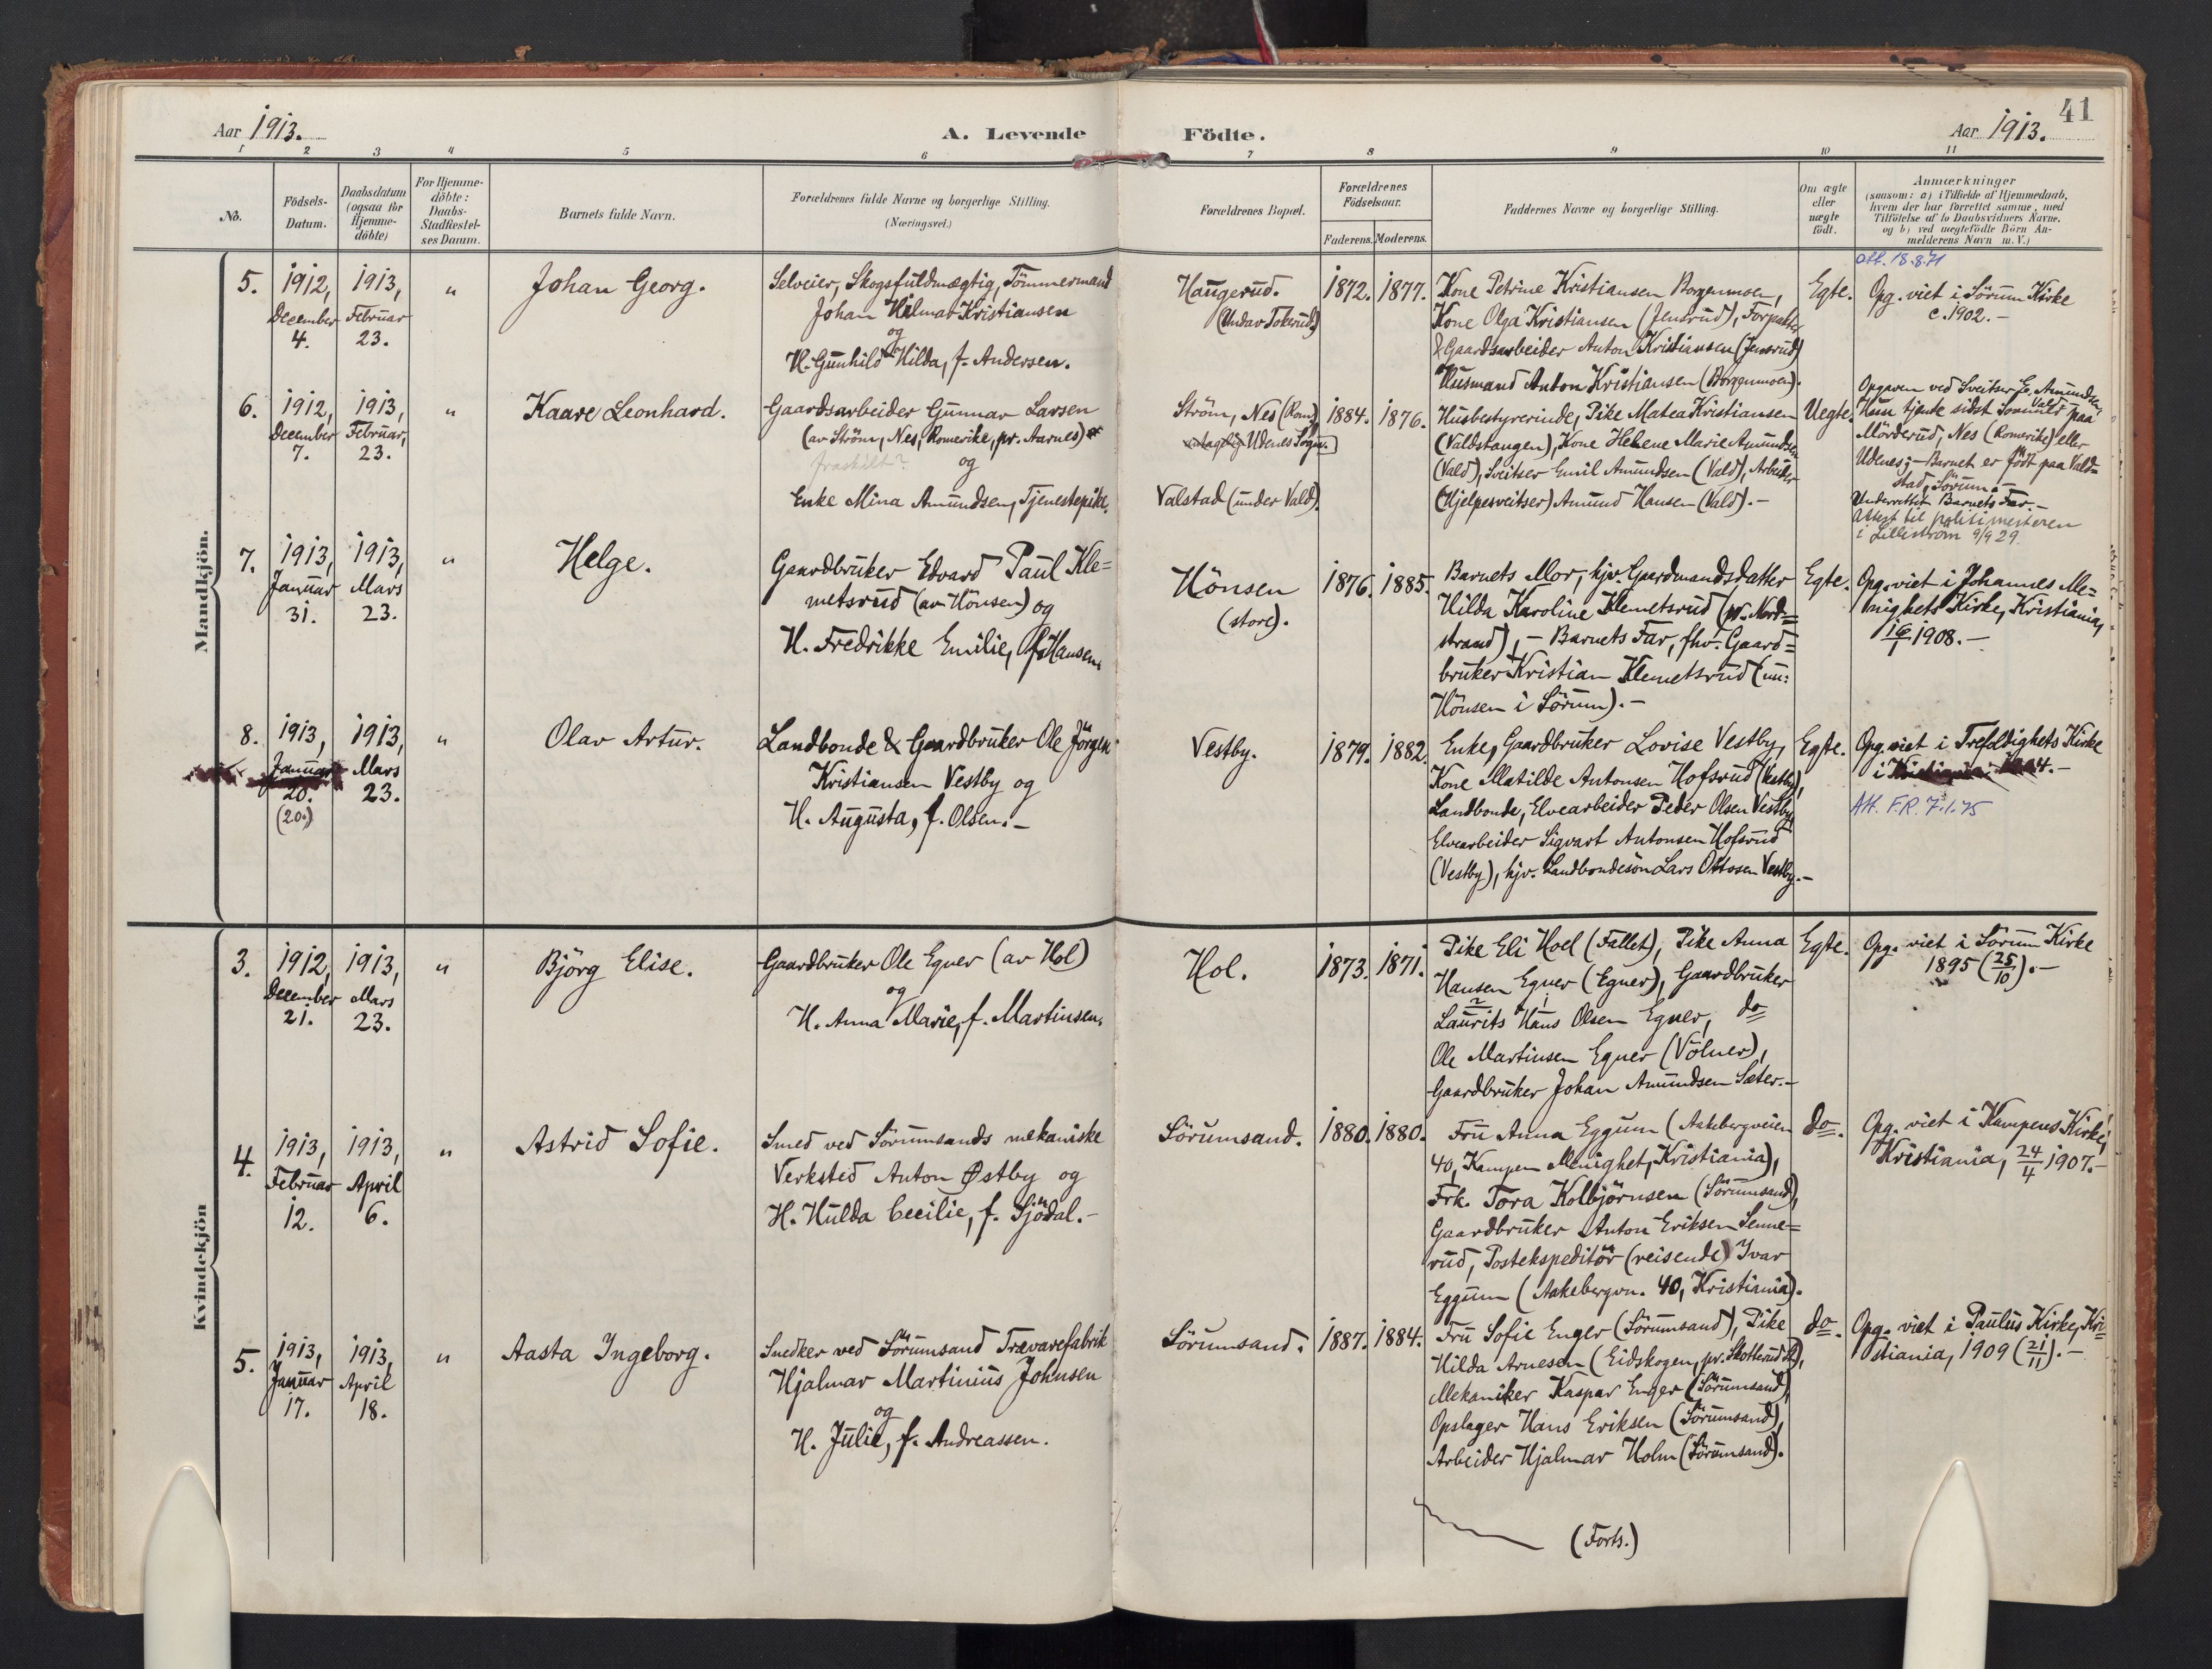 41
Aar 1913.
A. Levende Födte.
Aar 1913.
1 2 3 4 5 6 7 8 9 10 11
No.
Födsels-
Datum.
Daabsdatum
(ogsaa for
Hjemme-
döbte)
For Hjemme-
döbte:
Daabs-
Stadfæstel-
ses Datum.
Barnets fulde Navn.
Forældrenes fulde Navne og borgerlige Stilling.
(Næringsvei.)
Forældrenes Bopæl.
Forældrenes
Födselsaar.
Faderens. Moderens.
Faddernes Navne og borgerlige Stilling.
Om ægte
eller
uægte
födt.
Anmærkninger
(saasom: a) i Tilfælde af Hjemmedaab,
hvem der har forrettet samme, med
Tilföielse af to Daabsvidners Navne,
og b) ved uægtefödte Börn An-
melderens Navn m. V.)
Mandkjön.
5.
1912,
December
4.
1913,
Februar
23.
"
Johan Georg.
Selveier, Skogsfuldmægtig, Tömmermand
Johan Hilmar Kristiansen
og
H. Gunhild Hilda, f. Andersen.
Haugerud.
(Undav Tokerud.)
1872.
1877.
Kone Petrine Kristiansen Borgenmoen,
Kone Olga Kristiansen (Jensrud), Forpakter
& Gaardsarbeider Anton Kristiansen (Jensrud)
og
Husmand Anton Kristiansen (Borgenmoen).
Egte.
att. 18.8.71
Opg. viet i Sörum Kirke
c. 1902.-
6.
1912,
December
7.
1913,
Februar,
23.
"
Kaare Leonhard.
Gaardsarbeider Gunnar Larsen
(av Ström, Nes, Romerike, pr. Aarnes)
fraskilt?
og
Enke Mina Amundsen, Tjenestepike.
Ström, Nes (Rom.)
Udenes Sogn.
Valstad (under Vald).
1884.
1876.
Husbestyrerinde, Pike Matea Kristiansen
(Valdstangen), Kone Helene Marie Amundsen
(Vald), Sveitser Emil Amundsen (Vald), Arbeider
(Hjelpesveitser) Amund Hansen (Vald).-
Uegte.
Opgaven ved Sveitser E. Amundsen,
Vald
Hun tjente sidst Sommer paa
Mörderud, Nes (Romerike) eller
Udenes; - Barnet er födt paa Vald-
stad, Sörum.-
Underrettet Barnets Far.-
Attest til politimesteren
i Lilleström 9/9 29.
7.
1913,
Januar
31.
1913,
Mars
23.
"
Helge.
Gaardbruker Edvard Paul Kle-
metsrud (av Hönsen) og
H. Fredrikke Emilie, f. Hansen.
Hönsen
(store).
1876.
1885.
Barnets Mor, hjv. Gaardmandsdatter
Hilda Karoline Klemetsrud (pr. Nord-
strand), - Barnets Far, fhv. Gaard-
bruker Kristian Klemetsrud (nu:
Hönsen i Sörum).-
Egte.
Opg. viet i Johannes Me-
nighets Kirke, Kristiania,
1908.-
8.
1913,
Januar
20.
(20.)
1913,
Mars
23.
"
Olav Artur.
Landbonde & Gaardbruker Ole Jörgen
Kristiansen Vestby og
H. Augusta, f. Olsen.-
Vestby.
1879.
1882.
Enke, Gaardbruker Lovise Vestby,
Kone Matilde Antonsen Hofsrud (Vestby),
Landbonde, Elvearbeider Peder Olsen Vestby,
Elvearbeider Sigvart Antonsen Hofsrud
(Vestby), hjv. Landbondesön Lars Ottosen Vestby.-
Egte.
Opg. viet i Trefoldighets Kirke
i Kristiania 1904.-
Att. F.R. 7.1.75
Kvindekjön
3.
1912,
December
21.
1913,
Mars
23.
"
Björg Elise.
Gaardbruker Ole Egner (av Hol)
og
H. Anna Marie, f. Martinsen.
Hol.
1873.
1871.
Pike Eli Hoel (Fallet), Pike Anna
Hansen Egner (Egner), Gaardbruker
2 1
Laurits Hans Olsen Egner, do
Ole Martinsen Egner (Völner),
Gaardbruker Johan Amundsen Sæter.-
Egte.
Opg. viet i Sörum Kirke
1895 (25/10).-
4.
1913,
Februar
12.
1913,
April
6.
"
Astrid Sofie.
Smed ved Sörumsands mekaniske
Verksted Anton Østby og
H. Hulda Cecilie, f. Sjödal.-
Sörumsand.
1880.
1880.
Fru Anna Eggum (Aakebergveien
40, Kampen Menighet, Kristiania),
Frk. Tora Kolbjörnsen (Sörumsand),
Gaardbruker Anton Eriksen Senne-
rud, Postekspeditör (reisende) Ivar
Eggum (Aakebergvn. 40, Kristiania).
do.
Opg. viet i Kampens Kirke,
Kristiania, 24/4 1907.-
5.
1913,
Januar
17.
1913,
April
18.
"
Aasta Ingeborg.
Snedker ved Sörumsand Trævarefabrik
Hjalmar Martinius Johnsen
og
H. Julie, f. Andreassen.
Sörumsand.
1887.
1884.
Fru Sofie Enger (Sörumsand), Pike
Hilda Arnesen (Eidskogen, pr. Skotterud St.),
Mekaniker Kaspar Enger (Sörumsand),
Opslager Hans Eriksen (Sörumsand),
Arbeider Hjalmar Holm (Sörumsand).
do.
Opg. viet i Paulus Kirke, Kri-
stiania, 1909 (21/11).-
(Forts.)